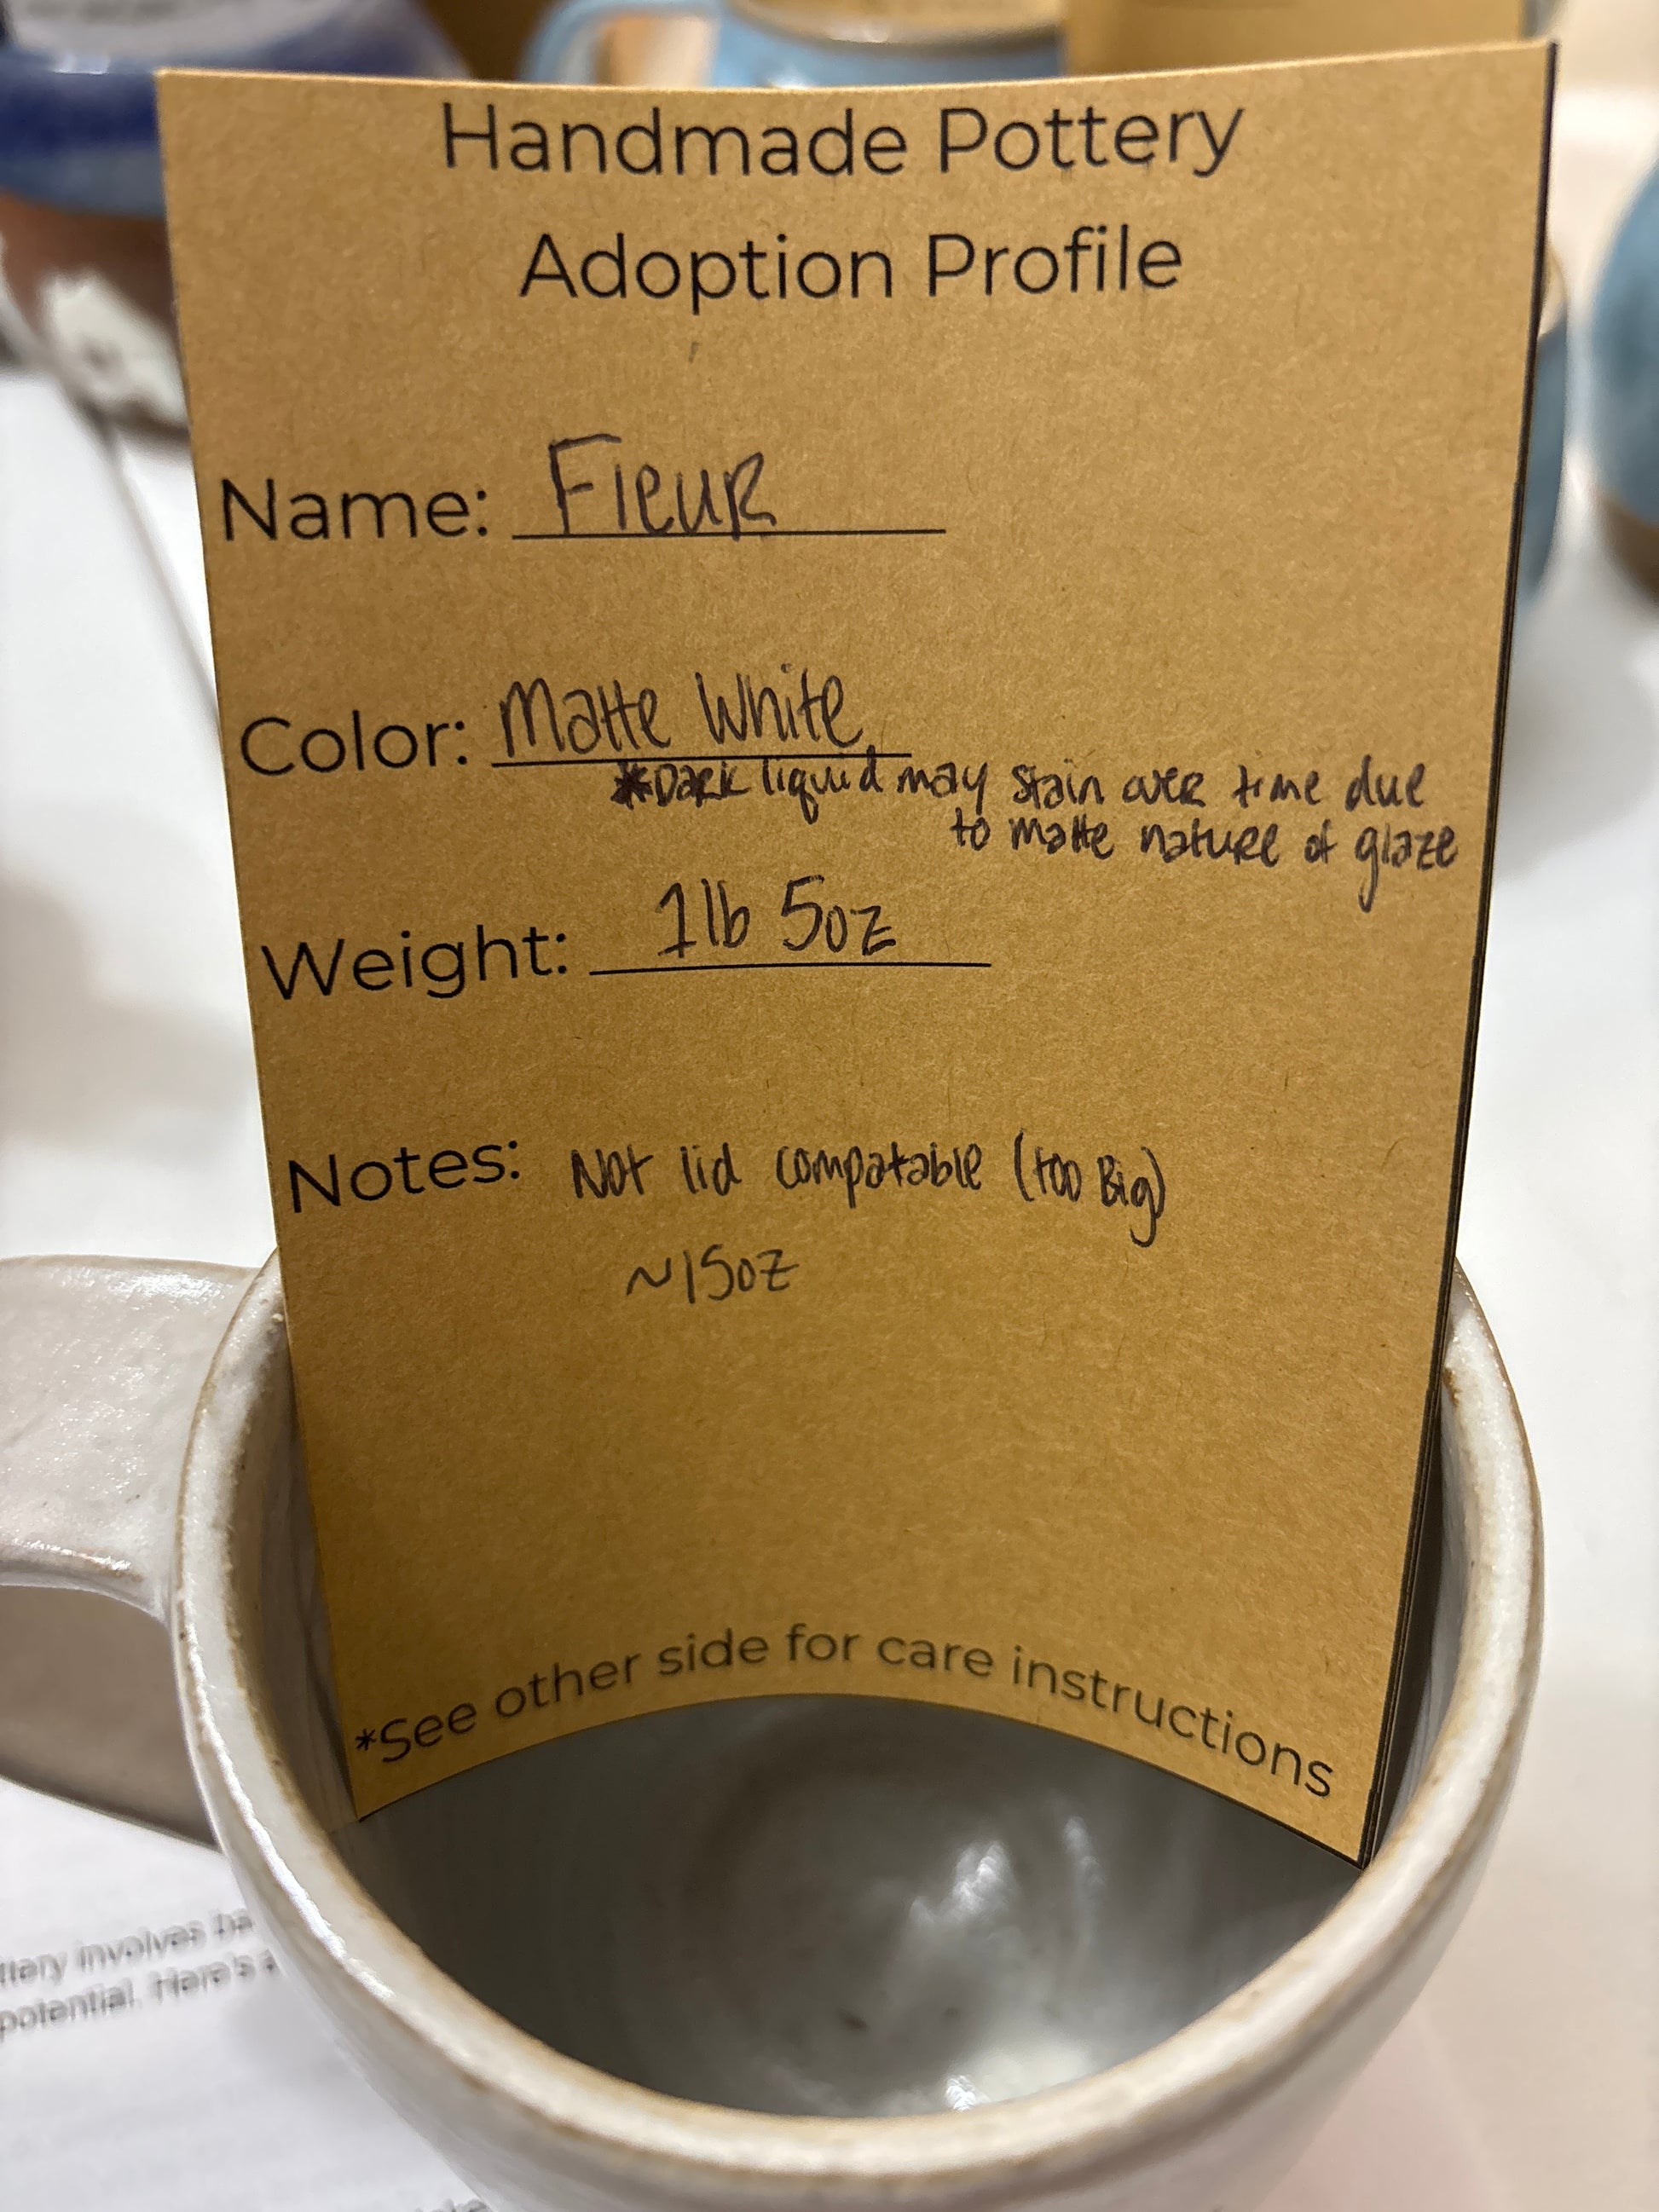 Handmade Pottery
Adoption Profile
Name: Fleur
Color: Matte White
*Dark liquid may stain over time due
to matte nature of glaze
Weight: 1lb 5oz
Notes: Not lid compatable (too Big)
~15oz
*See other side for care instructions
involves
potential. Here's a